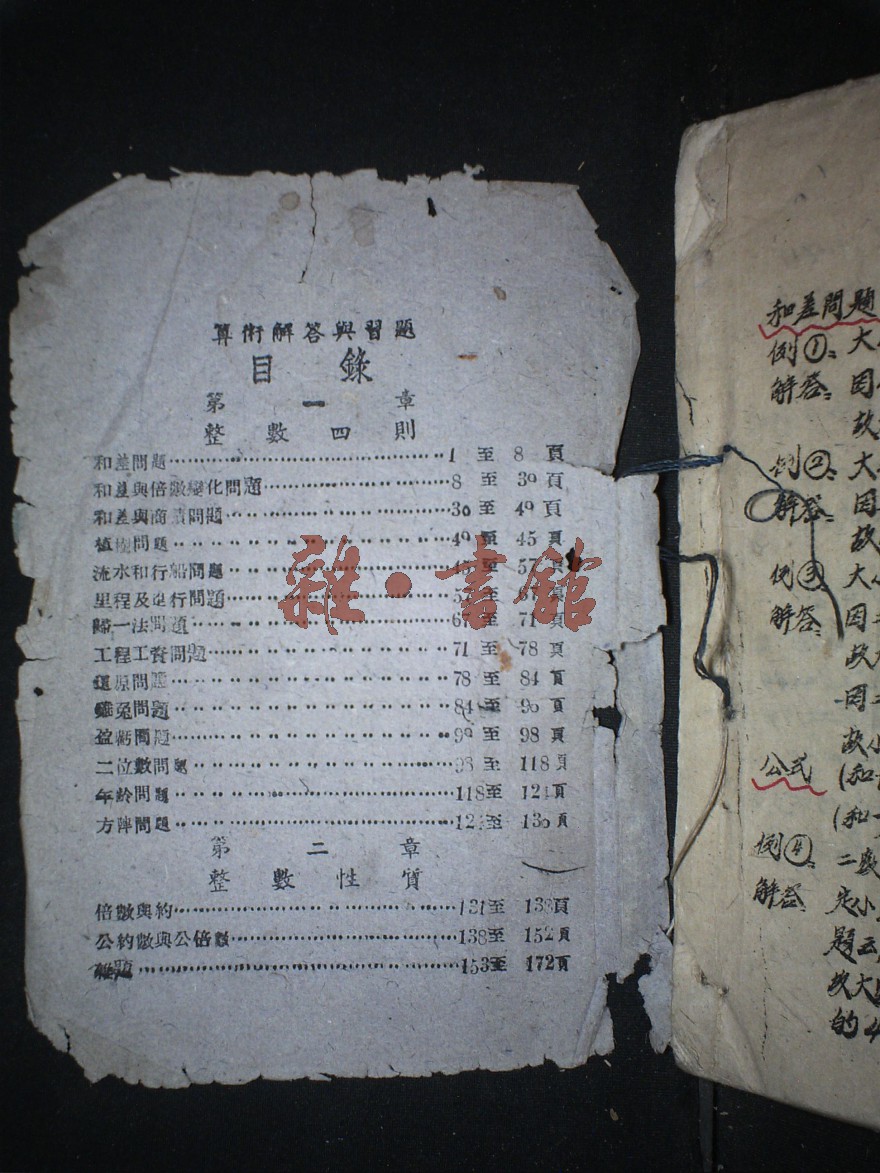 算術解答與習題
目錄
第一章
整數四則
和差問題 1至8頁
和差與倍數變化問題 8至30頁
和差與商積問題 30至49頁
植樹問題 49至45頁
流水和行船問題 至57頁
里程及進行問題
歸一法問題 至71頁
工程工資問題 71至78頁
還原問題 78至84頁
雞兔問題 84至90頁
盈虧問題 至98頁
二位數問題 98至118頁
年齡問題 118至124頁
方陣問題 至130頁
第二章
整數性質
倍數與約 131至138頁
公約數與公倍數 138至152頁
雜題 153至172頁
雜·書館
和差問題
例①: 大
解答: 因
故
例②: 大
解答: 因
故
例③: 大小
解答: 因
故
因
故小
公式 (和
(和
例④: 二
解答
題云
故大
的4